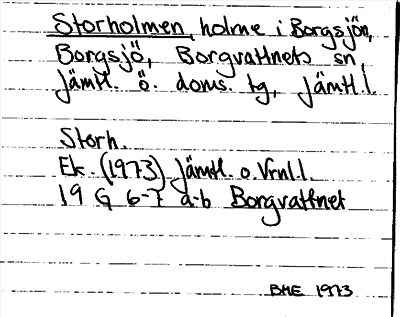 Storholmen, holme i Borgsjön,
Borgsjö, Borgvattnets sn,
Jämtl. ö. doms. tg, Jämtl. l.
Storh.
Ek. (1973) Jämtl. o. Vrnl. l.
19 G 6-7 a-b Borgvattnet
BME 1973